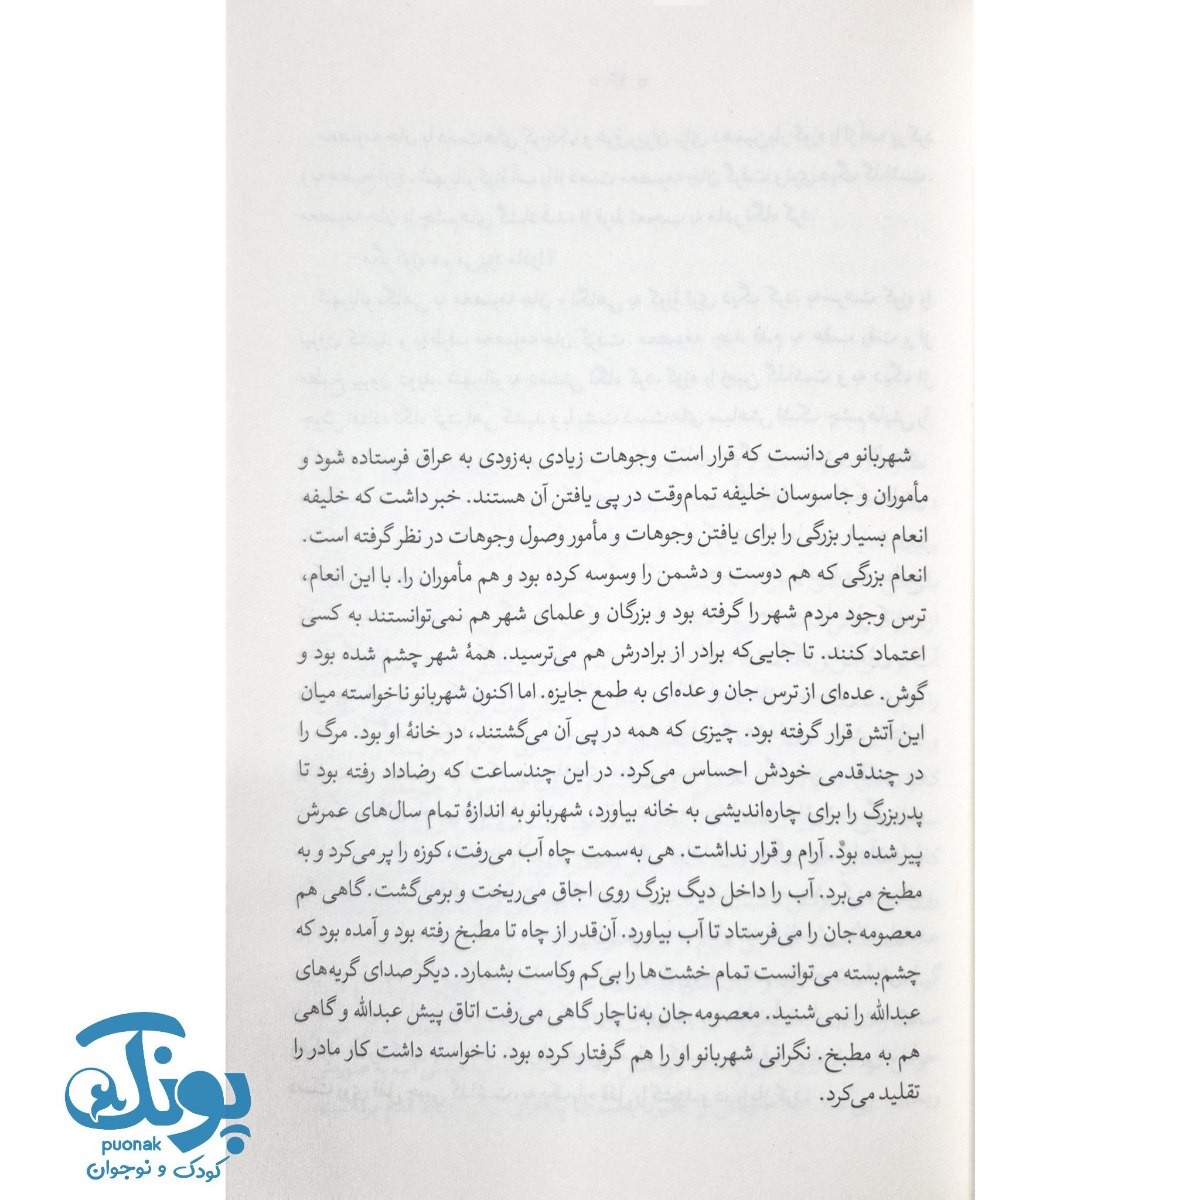 شهربانو می‌دانست که قرار است وجوهات زیادی به‌زودی به عراق فرستاده شود و
مأموران و جاسوسان خلیفه تمام‌وقت در پی یافتن آن هستند. خبر داشت که خلیفه
انعام بسیار بزرگی را برای یافتن وجوهات و مأمور وصول وجوهات در نظر گرفته است.
انعام بزرگی که هم دوست و دشمن را وسوسه کرده بود و هم مأموران را. با این انعام،
ترس وجود مردم شهر را گرفته بود و بزرگان و علمای شهر هم نمی‌توانستند به کسی
اعتماد کنند. تا جایی‌که برادر از برادرش هم می‌ترسید. همهٔ شهر چشم شده بود و
گوش. عده‌ای از ترس جان و عده‌ای به طمع جایزه. اما اکنون شهربانو ناخواسته میان
این آتش قرار گرفته بود. چیزی که همه در پی آن می‌گشتند، در خانهٔ او بود. مرگ را
در چندقدمی خودش احساس می‌کرد. در این چندساعت که رضاداد رفته بود تا
پدربزرگ را برای چاره‌اندیشی به خانه بیاورد، شهربانو به اندازهٔ تمام سال‌های عمرش
پیر شده بود. آرام و قرار نداشت. هی به‌سمت چاه آب می‌رفت، کوزه را پر می‌کرد و به
مطبخ می‌برد. آب را داخل دیگ بزرگ روی اجاق می‌ریخت و برمی‌گشت. گاهی هم
معصومه‌جان را می‌فرستاد تا آب بیاورد. آن‌قدر از چاه تا مطبخ رفته بود و آمده بود که
چشم‌بسته می‌توانست تمام خشت‌ها را بی‌کم وکاست بشمارد. دیگر صدای گریه‌های
عبدالله را نمی‌شنید. معصومه‌جان به‌ناچار گاهی می‌رفت اتاق پیش عبدالله و گاهی
هم به مطبخ. نگرانی شهربانو او را هم گرفتار کرده بود. ناخواسته داشت کار مادر را
تقلید می‌کرد.
پونک
puonak
کودک و نوجوان